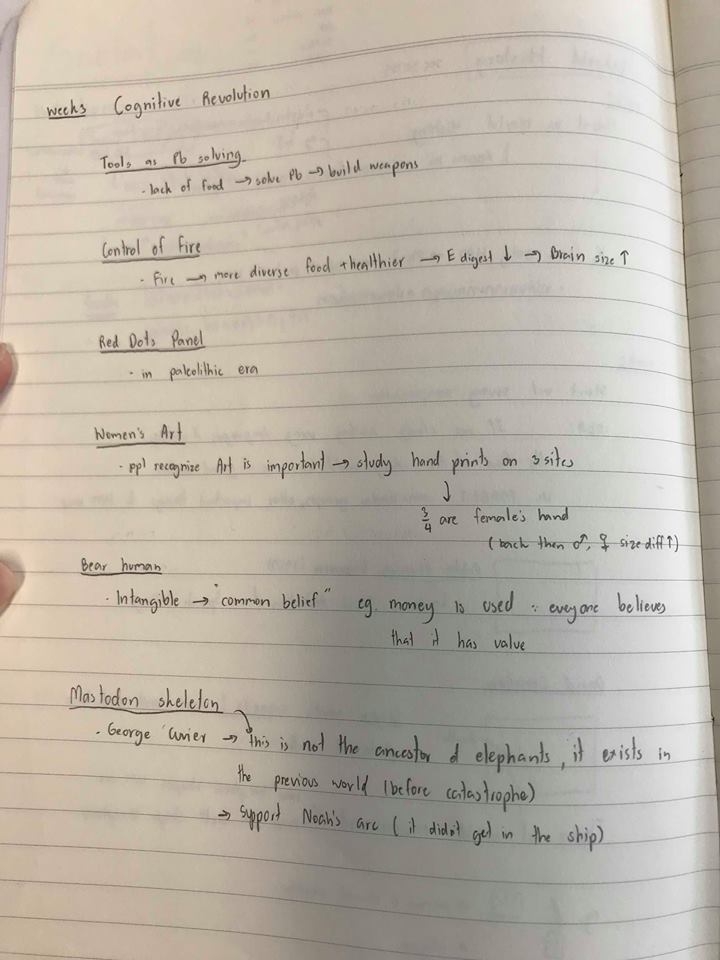 weeks Cognitive Revolution
Tools as Pb solving
· lack of food → solve Pb → build weapons
Control of Fire
· Fire → more diverse food + healthier → E digest ↓ → Brain size ↑
Red Dots Panel
· in paleolithic era
Women's Art
· ppl recognize Art is important → study hand prints on 3 sites
↓
3/4 are female's hand
(back then ♂, ♀ size diff ↑)
Bear human
· Intangible → "common belief" eg. money is used ∵ everyone believes
that it has value
Mastodon skeleton
· George Cuvier → this is not the ancestor of elephants, it exists in
the previous world (before catastrophe)
→ support Noah's arc (it didn't get in the ship)